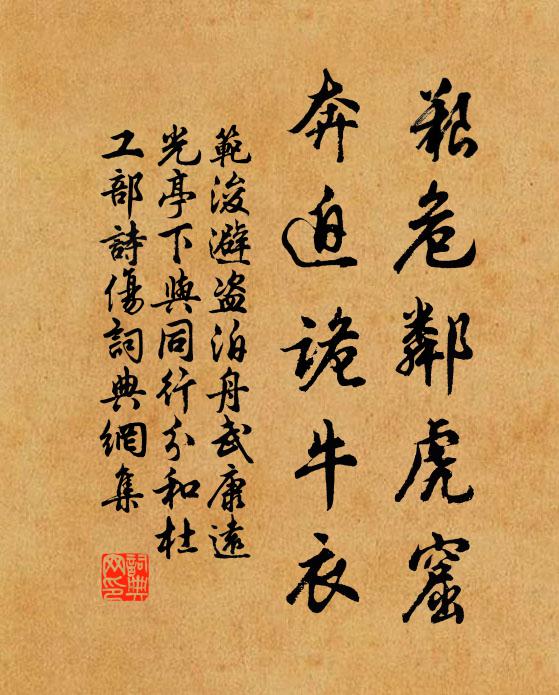 艱危鄰虎窟
奔迫詭牛衣
範浚避盗泊舟武康遠
光亭下與同行分和杜
工部詩傷詞典網集
詞典网印